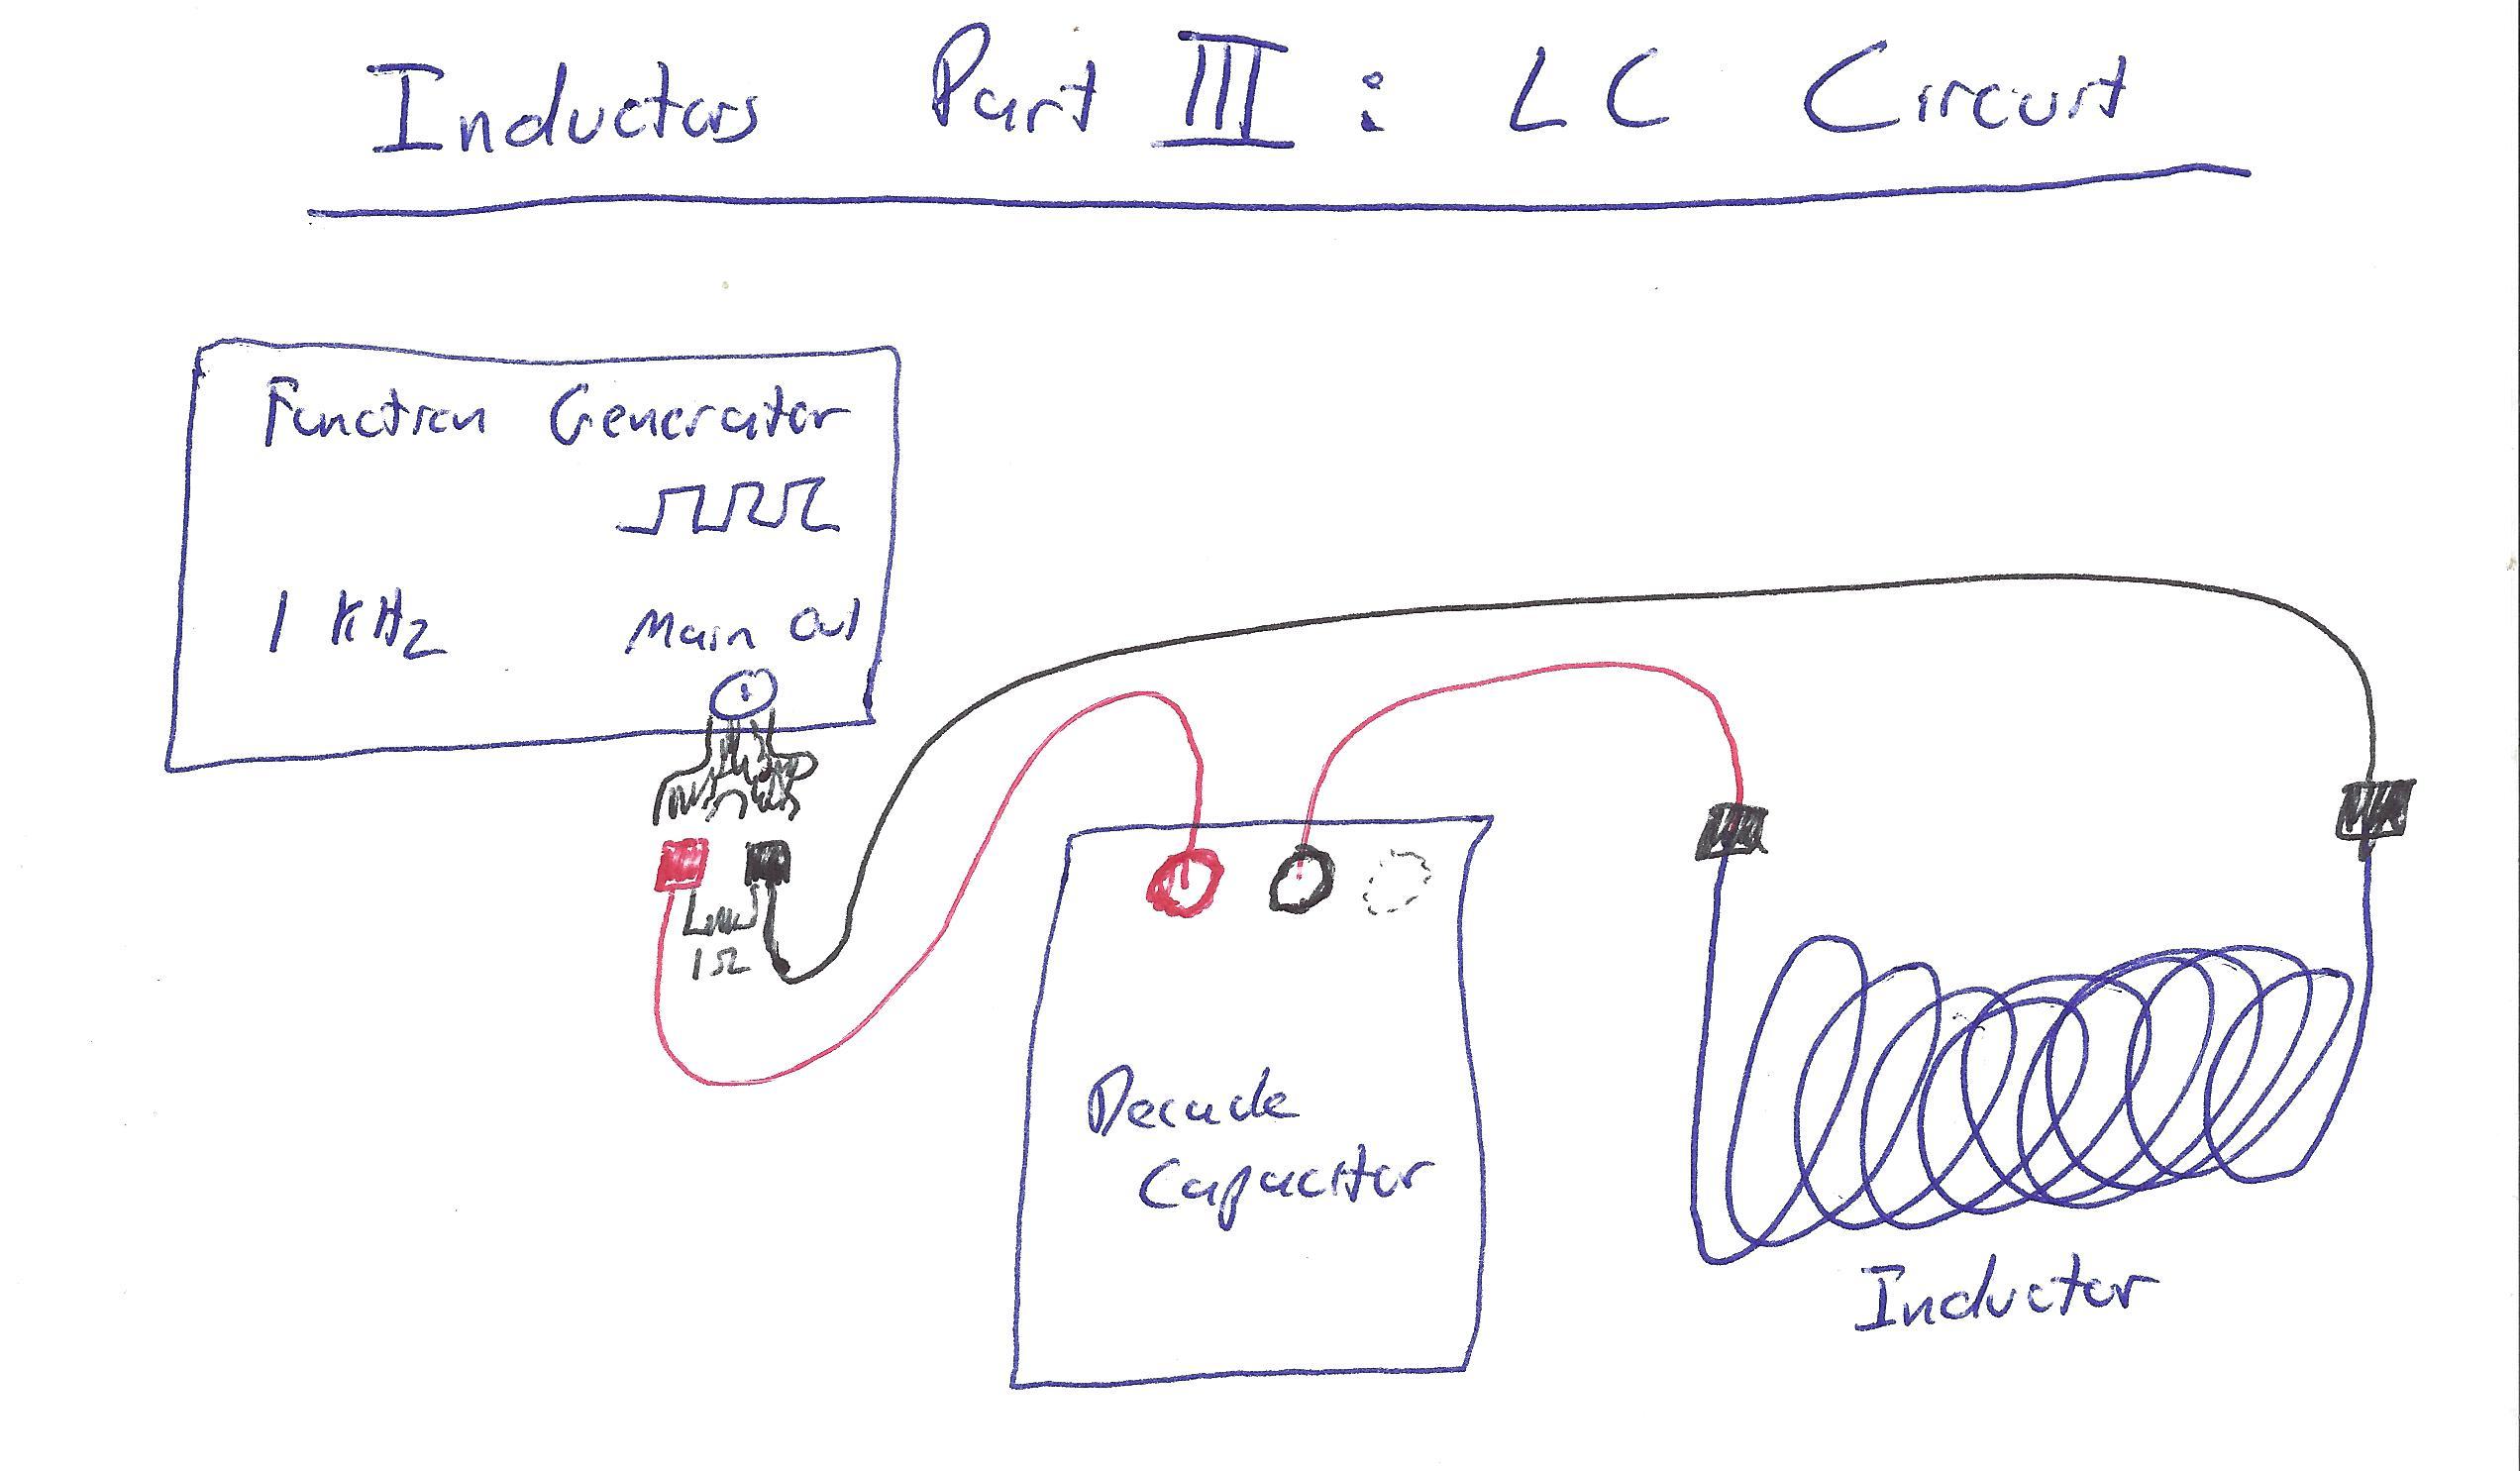 Inductors Part III : LC Circuit
Function Generator
1 KHz Main Out
1Ω
Decade
Capacitor
Inductor